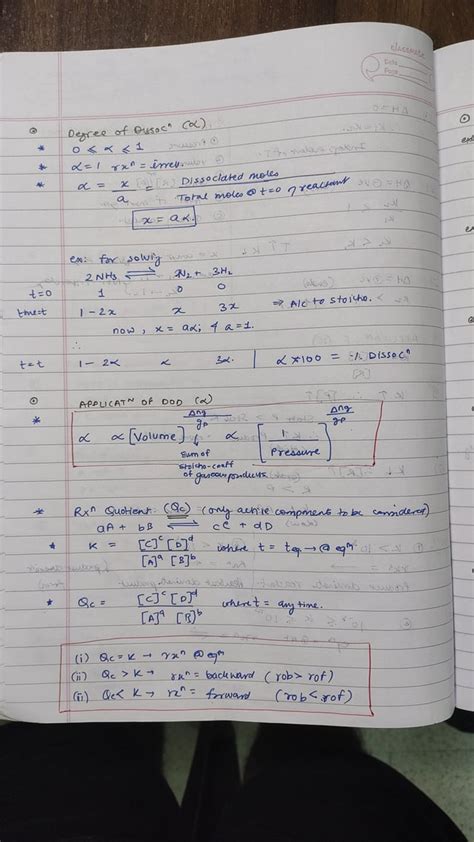 classmate
Date
Page
Degree of Dissocⁿ (α)
* 0 ≤ α ≤ 1
* α = 1 rxⁿ = irrev.
* α = x/a = Dissociated moles / Total moles @ t=0 of reactant
x = aα
ex: for solvig
2NH₃ ⇌ N₂ + 3H₂
t=0 1 0 0
time=t 1-2x x 3x ⇒ A/c to stoicho.
now, x = aα; & a = 1.
∴
t=t 1-2α α 3α | α×100 = % Dissocⁿ
APPLICATⁿ OF DOD (α)
* α ∝ [Volume]^(Δng/gp) ∝ [1/Pressure]^(Δng/gp)
sum of
stoicho-coeff
of gaseous products
* Rxⁿ Quotient: (Qc) (only active components to be considered)
aA + bB ⇌ cC + dD
* K = [C]^c [D]^d / [A]^a [B]^b where t = teq → @ eqᵐ
* Qc = [C]^c [D]^d / [A]^a [B]^b where t = any time.
(i) Qc = K → rxⁿ @ eqᵐ
(ii) Qc > K → rxⁿ = backward (rob > rof)
(iii) Qc < K → rxⁿ = forward (rob < rof)